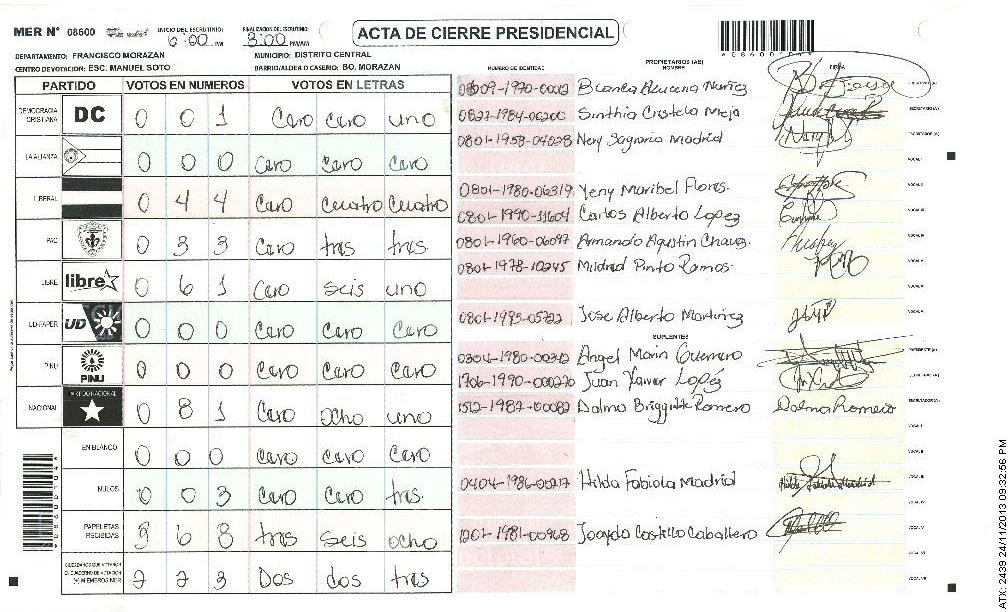 MER N° 08600
INICIO DEL ESCRUTINIO: 6:00 PM
FINALIZACION DEL ESCRUTINIO: 8:00 PM/AM
ACTA DE CIERRE PRESIDENCIAL
DEPARTAMENTO: FRANCISCO MORAZAN MUNICIPIO: DISTRITO CENTRAL
CENTRO DE VOTACION: ESC. MANUEL SOTO BARRIO/ALDEA O CASERIO: BO. MORAZAN
PARTIDO VOTOS EN NUMEROS VOTOS EN LETRAS
DEMOCRACIA CRISTIANA DC 0 0 1 Cero cero uno
LA ALIANZA 0 0 0 Cero Cero Cero
LIBERAL 0 4 4 Cero Cuatro Cuatro
PAC 0 3 3 Cero tres tres
LIBRE libre 0 6 1 Cero seis uno
UD-FAPER UD 0 0 0 Cero Cero Cero
PINU PINU 0 0 0 Cero Cero Cero
NACIONAL PARTIDO NACIONAL 0 8 1 Cero ocho uno
EN BLANCO 0 0 0 Cero Cero Cero
NULOS 0 0 3 Cero Cero tres.
PAPELETAS RECIBIDAS 3 6 8 tres seis ocho
CIUDADANOS QUE VOTARON EN CUADERNO DE VOTACION (+) MIEMBROS MER 2 2 3 Dos dos tres
NUMERO DE IDENTIDAD
PROPIETARIOS (AS)
NOMBRE
FIRMA
Blanca Nuñez
0827-1984-06200 Sinthia Cristela Mejia
0801-1958-04028 Nery Sagrario Madrid
0801-1980-06319 Yeny Maribel Flores.
0801-1990-11604 Carlos Alberto Lopez
0801-1960-06097 Armando Agustin Chavez.
0801-1978-10245 Mildred Pinto Ramos.
0801-1995-05722 Jose Alberto Martinez
SUPLENTES
Angel Marin Guerrero
Juan Xavier Lopéz
1512-1987-00082 Dalma Romero Dalma Romero
0404-1986-00217 Hilda Fabiola Madrid
1201-1981-00968 Castillo Caballero
ATX: 2439 24/11/2013 09:32:56 PM